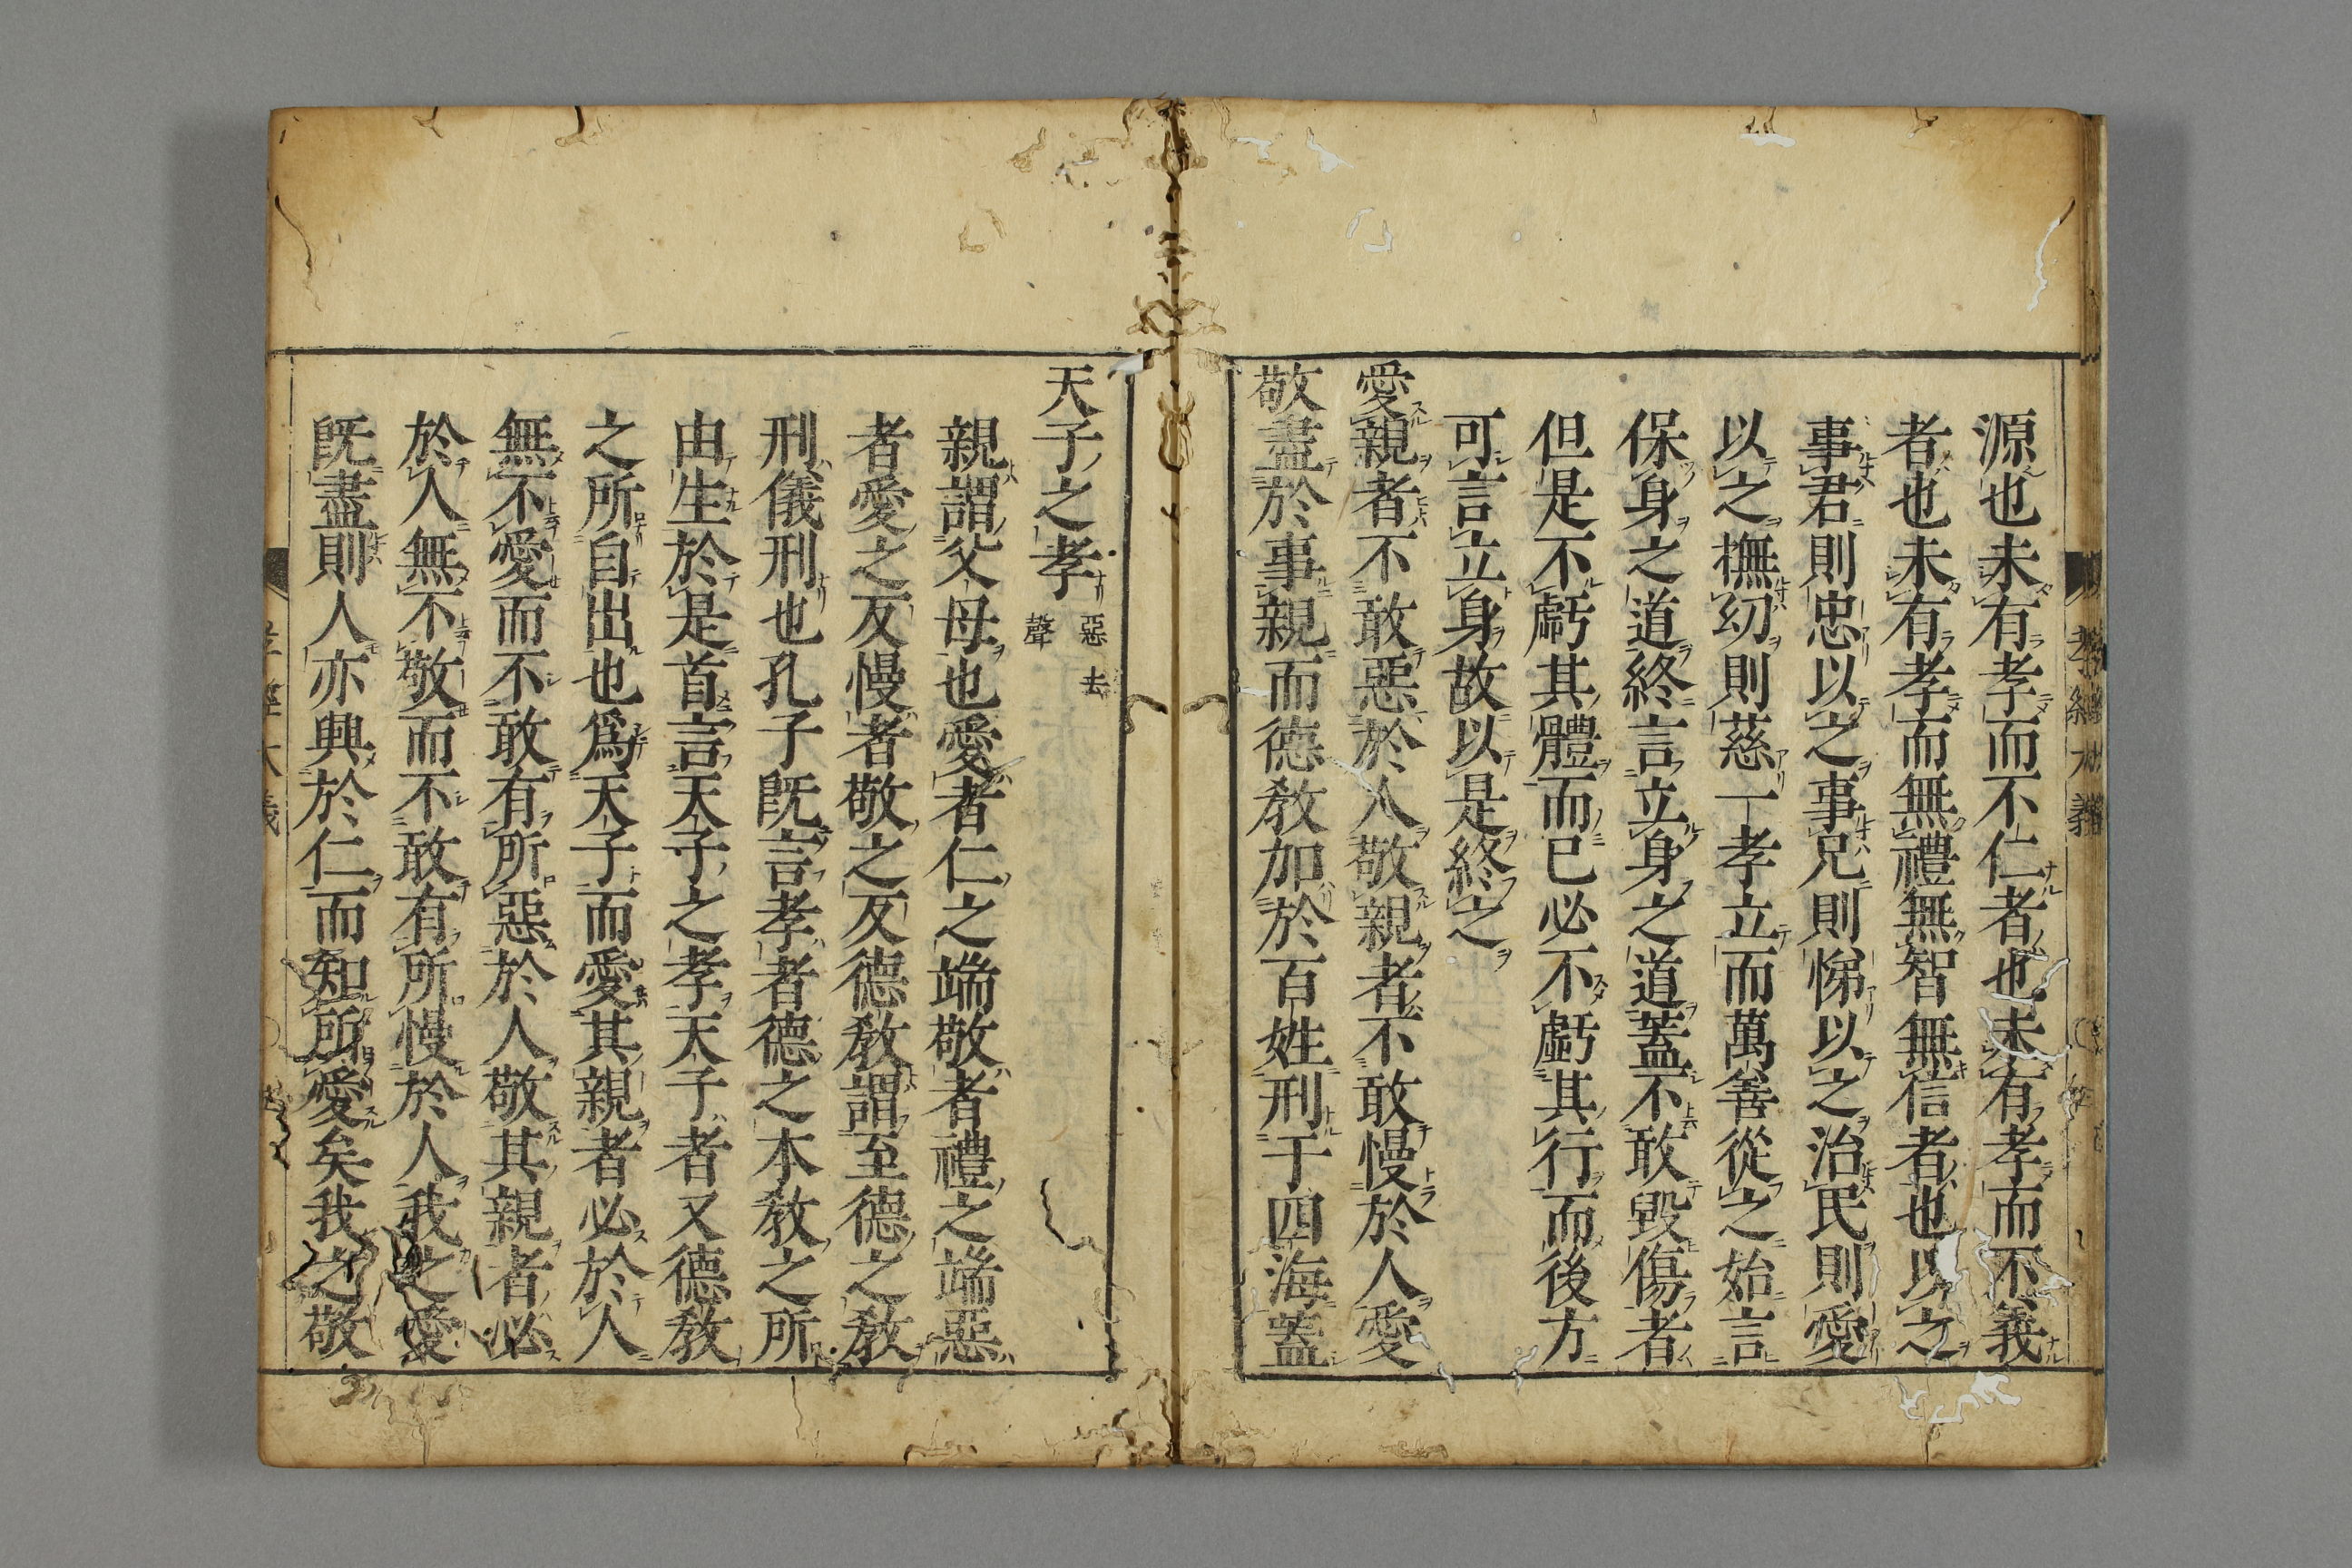 源也未有孝而不仁者也未有孝而不義
者也未有孝而無禮無智無信者也以之
事君則忠以之事兄則悌以之治民則愛
以之撫幼則慈一孝立而萬善從之始言
保身之道終言立身之道蓋不敢毀傷者
但是不虧其體而已必不虧其行而後方
可言立身故以是終之
愛親者不敢惡於人敬親者不敢慢於人愛
敬盡於事親而德教加於百姓刑于四海蓋
天子之孝 惡去
聲
親謂父母也愛者仁之端敬者禮之端惡
者愛之反慢者敬之反德教謂至德之教
刑儀刑也孔子既言孝者德之本教之所
由生於是首言天子之孝天子者又德教
之所自出也爲天子而愛其親者必於人
無不愛而不敢有所惡於人敬其親者必
於人無不敬而不敢有所慢於人我之愛
既盡則人亦興於仁而知所愛矣我之敬